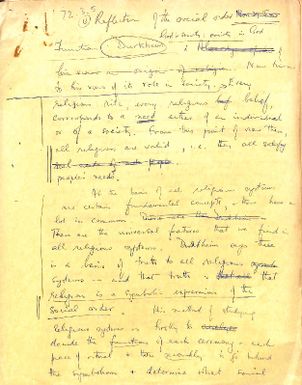 72 3.5
(4) Reflection of the social order
God - society, society is God
Function Durkheim :
his views on origin of religion. Now turn
to his view of its role in society. Every
religious rite, every religious belief,
corresponds to a need either of an individual
or of a society. From this point of view then,
all religions are valid, i.e. they all satisfy
people's needs.
At the basis of all religious systems
are certain fundamental concepts, they have a
lot in common.
These are the universal features that we find in
all religious systems. Durkheim says there
is a basis of truth to all religious
systems - and that truth is that
religion is a symbolic expression of the
social order. His method of studying
religious systems is firstly to
decide the functions of each ceremony & each
piece of ritual & then secondly is go behind
the symbolism & determine what social